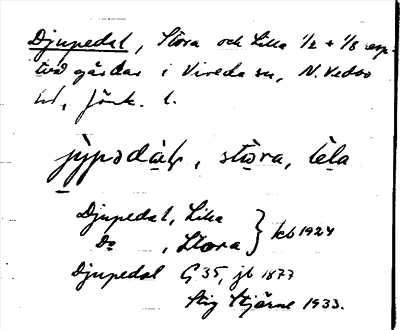 Djupedal, Stora och Lilla 1/2 + 1/8 resp.
två gårdar i Vireda sn, N. Vedbo
hd, Jönk. l.
jỳpədàḷ, stòra, lèla
Djupedal, Lilla
Do , Stora } kb 1924
Djupedal G 35, jb 1877
Stig Stjärne 1933.